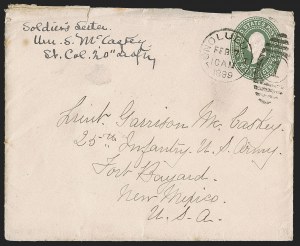 Soldier's Letter
Wm. S. McCaskey
Lt. Col. 20" Infty
HONOLULU
FEB
10 AM
1899
UNITED STATES
Lieut Garrison McCaskey
25th Infantry U.S. Army
Fort Bayard.
New Mexico.
U.S.A.